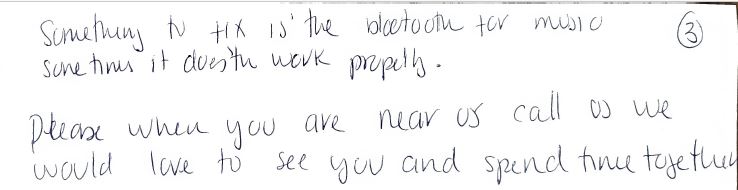 Something to fix is the bluetooth for music
3
some times it does'tn work propelly.
Please when you are near us call us we
would love to see you and spend time together